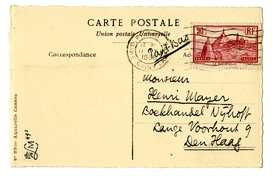 CARTE POSTALE
Union postale Universelle
Correspondance
90c RF
Monsieur
Henri Mayer
Boekhandel Nijhoff
Lange Voorhout 9
Den Haag